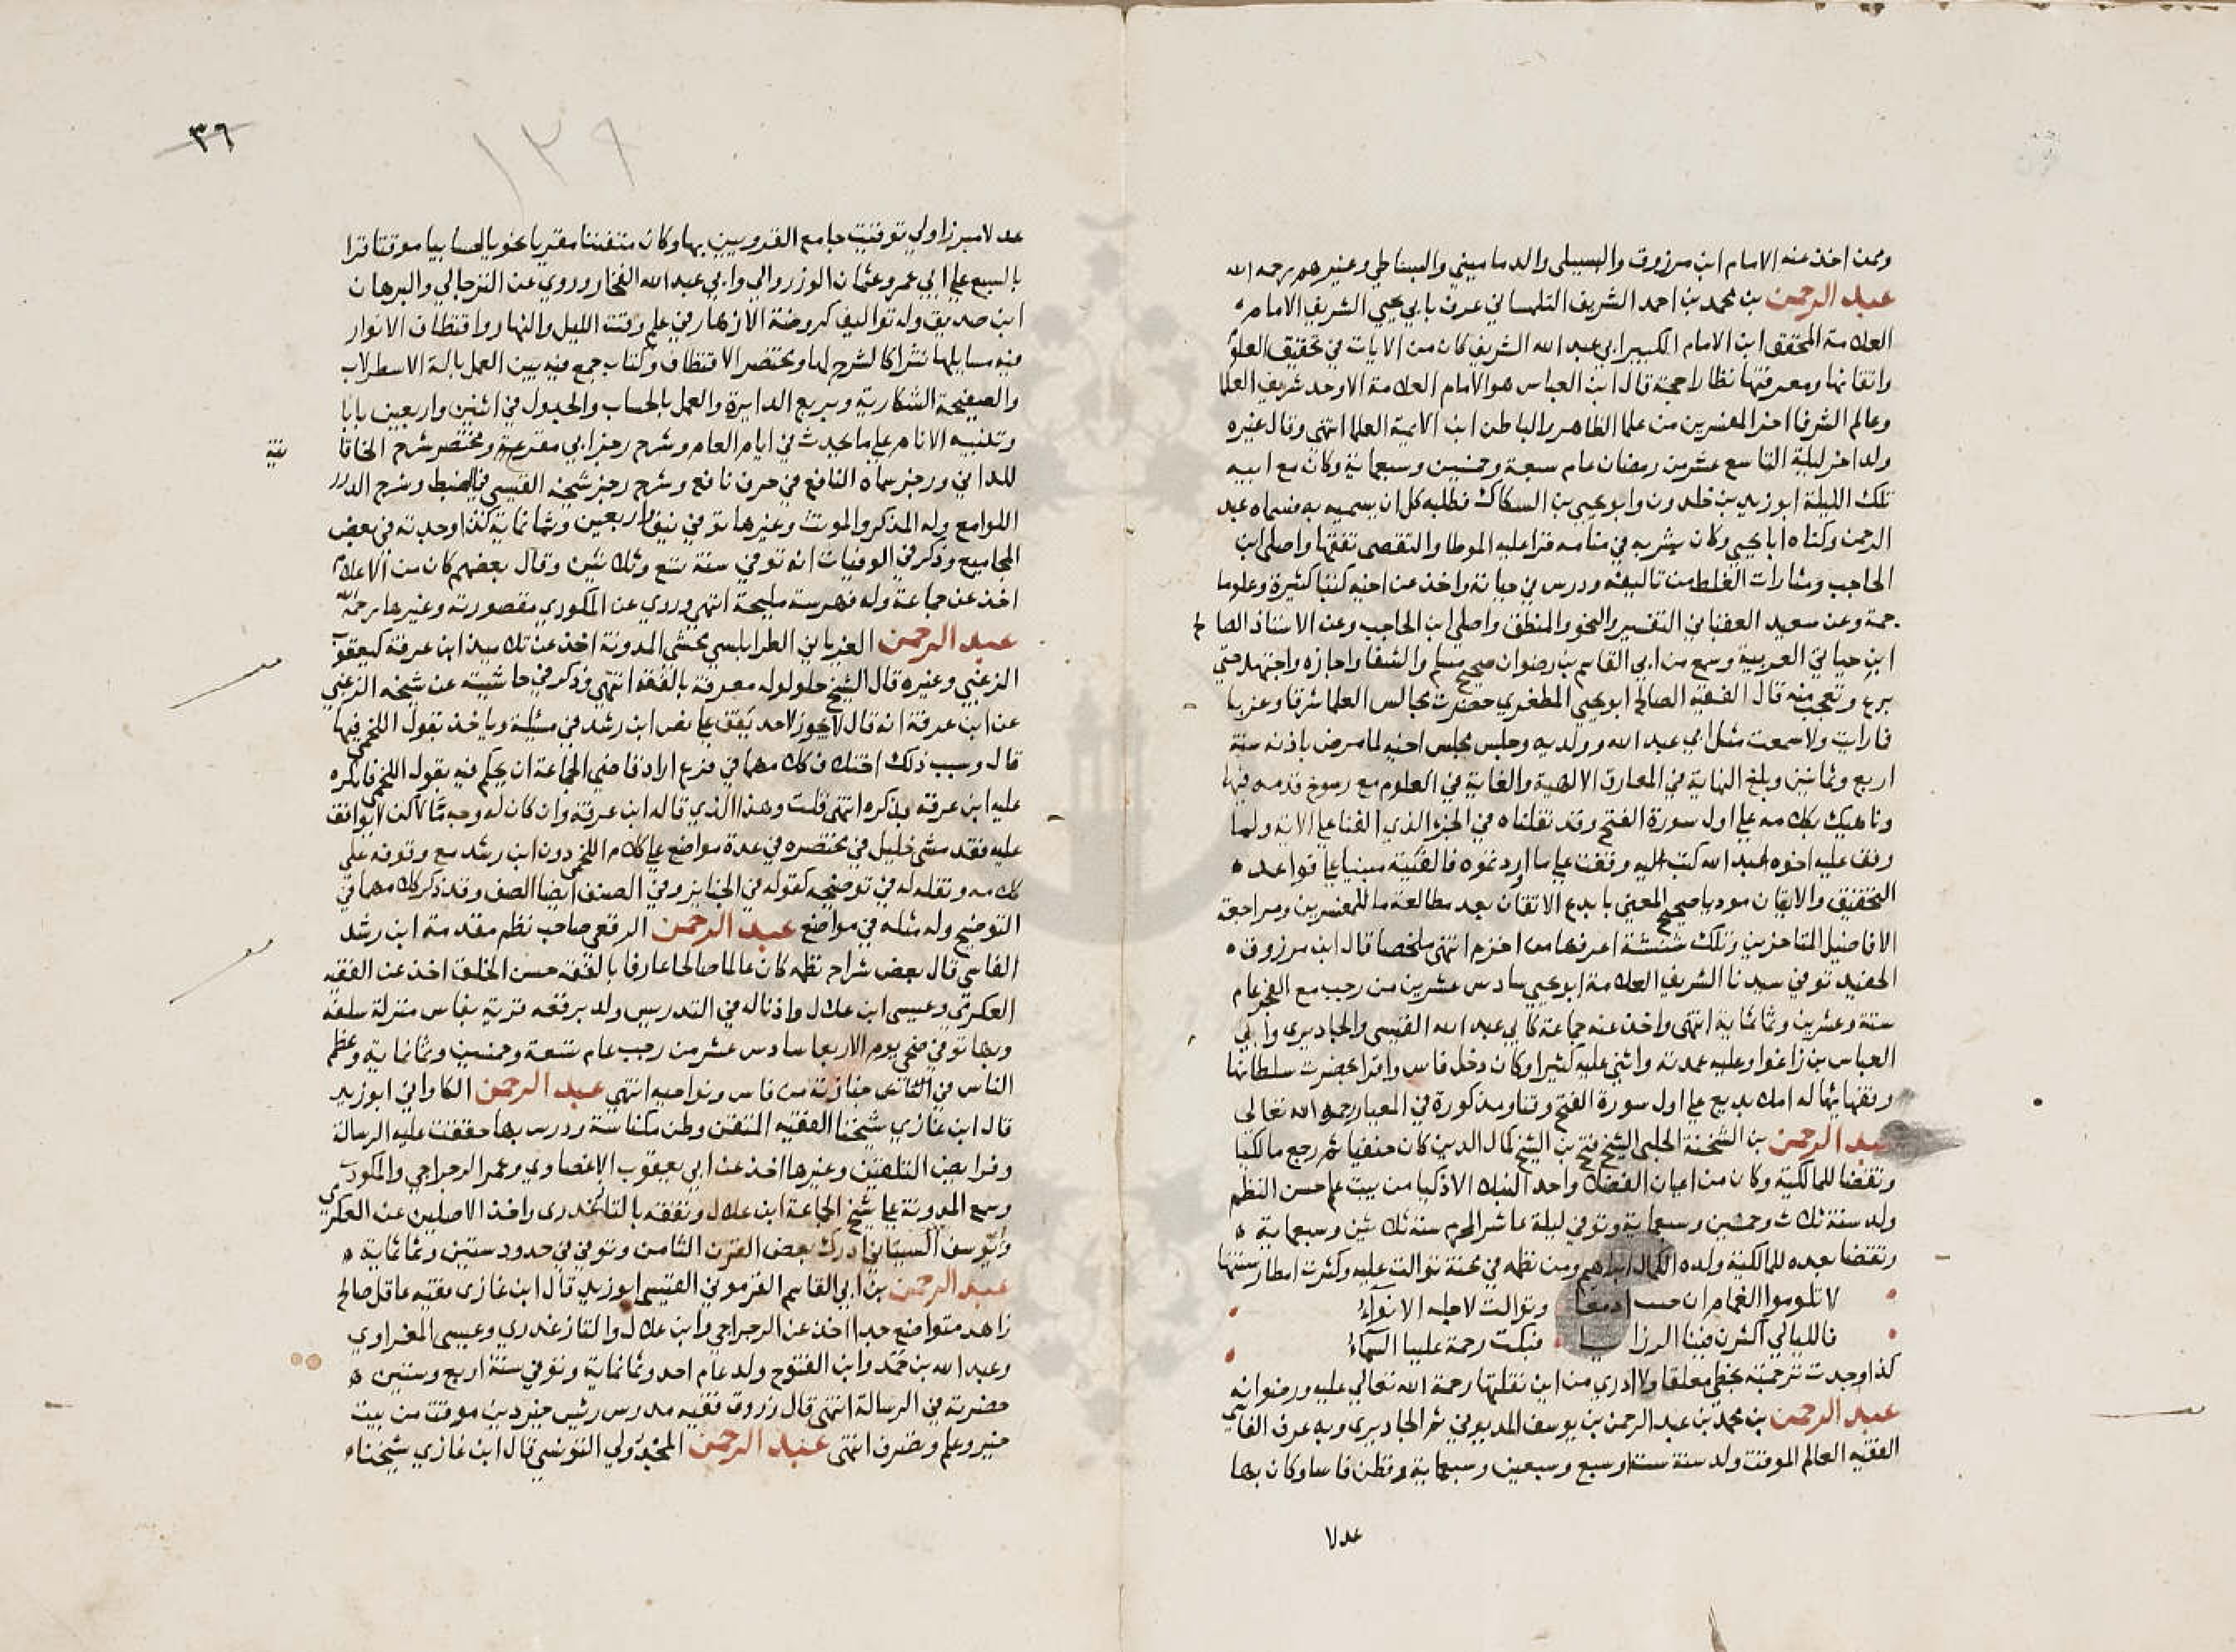 وممن اخذ عنه الامام ابن مرزوق والبسيلى والدماميني والبساطي وغيرهم رحمه الله
عبد الرحمن بن محمد بن احمد الشريف التلمساني عرف بابي يحيي الشريف الامام
العلامة المحقق ابن الامام الكبير ابي عبد الله الشريف كان من الايات في تحقيق العلوم
واتقانها ومعرفتها نظارا حجة قال ابن العباس هو الامام العلامة الاوحد شريف العلما
وعالم الشرفا اخر المفسرين من علما الظاهر والباطن ابن الايمة العلما انتهى وقال غيره
ولد اخر ليلة التاسع عشر من رمضان عام سبعة وخمسين وسبعماية وكان مع ابيه
تلك الليلة ابو زيد بن خلدون وابو يحيى بن السكاك فطلبه كل ان يسميه به فسماه عبد
الرحمن وكناه ابا يحيي وكان بشر به في منامه قرا عليه الموطا والتقصى تفقها واصلى ابن
الحاجب ومثارات الغلط من تاليفه ودرس في حياته واخذ عن اخيه كتبا كثيرة وعلوما
جمة وعن سعيد العقباني التفسير والنحو والمنطق واصلي ابن الحاجب وعن الاستاذ الصالح
ابن حياتي العربية وسمع من ابي القاسم بن رضوان صحيح مسلم والشفا واجازه واجتهد حتي
برع وتعجب منه قال الفقيه الصالح ابو يحيي المطغري حضرت مجالس العلما شرقا وغربا
فما رايت ولا سمعت مثل ابي عبد الله وولديه وجلس مجلس اخيه لما مرض باذنه سنة
اربع وثمانين وبلغ النهاية في المعارف الالهية والغاية في العلوم مع رسوخ قدمه فيها
وناهيك بكلامه علي اول سورة الفتح وقد نقلناه في الجزء الذي الفنا علي الاية ولما
وقف عليه اخوه عبد الله كتب اليه وقفت علي ما اوردتموه فالفيته مبنيا علي قواعد
التحقيق والايقان موديا صحيح المعني بابدع الاتقان بعد مطالعة ما للمفسرين ومراجعة
الافاضل المتاخرين وتلك شنشنة اعرفها من اخزم انتهى ملخصا قال ابن مرزوق
الحفيد توفي سيدنا الشريف العلامة ابو يحيي سادس عشرين من رجب مع الفجر عام
ستة وعشرين وثمانماية انتهى واخذ عنه جماعة كابي عبد الله القيسى والجاديرى وابي
العباس بن زاغوا وعليه عمدته واثني عليه كثيرا وكان دخل فاس واقرا بحضرت سلطانها
وفقهايها له املا بديع علي اول سورة الفتح وفتاو مذكورة في المعيار رحمه الله تعالى
عبد الرحمن بن الشحنة الحلبى الشيخ فتح بن الشيخ كمال الدين كان حنفيا ثم رجع مالكيا
وتقضا للمالكية وكان من اعيان الفضلا واحد النبلا الاذكيا من بيت علم حسن النظم
ولد سنة ثلاث وخمسين وسبعماية وتوفي ليلة عاشر المحرم سنة ثلاثين وسبعماية
وتقضا بعده للمالكية ولده الكمال ابراهيم ومن نظمه في محنة توالت عليه وكثرت امطار سنتها
لا تلوموا الغمام ان صب دمعا وتوالت لاجله الانوآء
فالليالي اكثرن فينا الرزايا فبكت رحمة علينا السمآء
كذا وجدت ترجمته بخطي معلقا ولا ادري من اين نقلتها رحمة الله تعالي عليه ورضوانه
عبد الرحمن بن محمد بن عبد الرحمن بن يوسف المديوني ثم الجاديرى وبه عرف الفاسي
الفقيه العالم الموقت ولد سنة ستة او سبع وسبعين وسبعماية وقطن فاسا وكان بها
عدلا
٣٦
١٣٩
عدلا مبرزا ولي توقيت جامع القرويين بها وكان متفننا مقريا نحويا حسابيا موقتا قرا
بالسبع علي ابي عمرو عثمان الوزروالي وابي عبد الله الفخار وروي عن الترجالي والبرهان
ابن صديق وله تواليف كروضة الازهار في علم وقت الليل والنهار واقتطاف الانوار
فيه مسايلها نثرا كالشرح لها ومختصر الاقتطاف وكتاب جمع فيه بين العمل بالة الاسطرلاب
والصفيحة الشكارية وبربع الدايرة والعمل بالحساب والجدول في اثنين واربعين بابا
وتنبيه الانام علي ما يحدث في ايام العام وشرح رجز ابي مقرعة ومختصر شرح الخاقا
نية
للداني ورجز سماه النافع في حرف نافع وشرح رجز شيخه القيسي في الضبط وشرح الدرر
اللوامع وله المذكر والمونث وغيرها توفي نيف واربعين وثمانماية كذا وجدته في بعض
المجاميع وذكر في الوفيات انه توفي سنة تسع وثلاثين وقال بعضهم كان من الاعلام
اخذ عن جماعة وله فهرسة مليحة انتهى وروي عن المكودي مقصورته وغيرها رحمه الله
عبد الرحمن الغرياني الطرابلسي محشى المدونة اخذ عن تلاميذ ابن عرفة كيعقوب
الزغبي وغيره قال الشيخ حلولو له معرفة بالفقه انتهى وذكر في حاشيته عن شيخه الزغبي
عن ابن عرفة انه قال لا يجوز لاحد يقف علي نص ابن رشد في مسئلة وياخذ بقول اللخمي فيها
قال وسبب ذلك اختلاف كلامهما في فزع اراد قاضي الجماعة ان يحكم فيه بقول اللخمي فانكره
عليه ابن عرفة وذكره انتهى قلت وهذا الذي قاله ابن عرفة وان كان له وجه ما لاكن لا يوافق
عليه فقد مشى خليل في مختصره في عدة مواضع علي كلام اللخمي دون ابن رشد مع وقوفه على
كلامه ونقله له في توضيحه كقوله في الجنايز وفي الصنف ايضا الصف وقد ذكر كلامهما في
التوضيح وله مثله في مواضع عبد الرحمن الرقعي صاحب نظم مقدمة ابن رشد
الفاسي قال بعض شراح نظمه كان عالما صالحا عارفا بالفقه حسن الخلق اخذ عن الفقيه
العكرمي وعيسى ابن علال واذنا له في التدريس ولد برقعه قرية بفاس منزلة سلفه
وبها توفي ضحى يوم الاربعا سادس عشر من رجب عام تسعة وخمسين وثمانماية وعظم
الناس في الثانى جنازته من فاس ونواحيه انتهي عبد الرحمن الكاواني ابو زيد
قال ابن غازي شيخنا الفقيه المتقن وطن مكناسة ودرس بها حققت عليه الرسالة
وفرايض التلقين وغيرها اخذ عن ابي يعقوب الاغصاوي وعمر الرجراجي والمكودي
وسمع المدونة علي شيخ الجماعة ابن علال وتفقه بالتازغدرى واخذ الاصلين عن العكرمي
وابو يوسف السيتاني ادرك بعض القرن الثامن وتوفي في حدود ستين وثمانماية
عبد الرحمن بن ابي القاسم القرموني القيسي ابو زيد قال ابن غازى فقيه عاقل صالح
زاهد متواضع جدا اخذ عن الرجراجي وابن علال والتازغدري وعيسى المغراوي
وعبد الله بن حمد وابن الفتوح ولد عام احد وثمانماية وتوفي سنة اربع وستين
حضرته في الرسالة انتهى قال زروق فقيه مدرس رئيس خير دين موقت من بيت
خير وعلم وتصرف انتهى عبد الرحمن المجدولي التونسي قال ابن غازي شيخنا